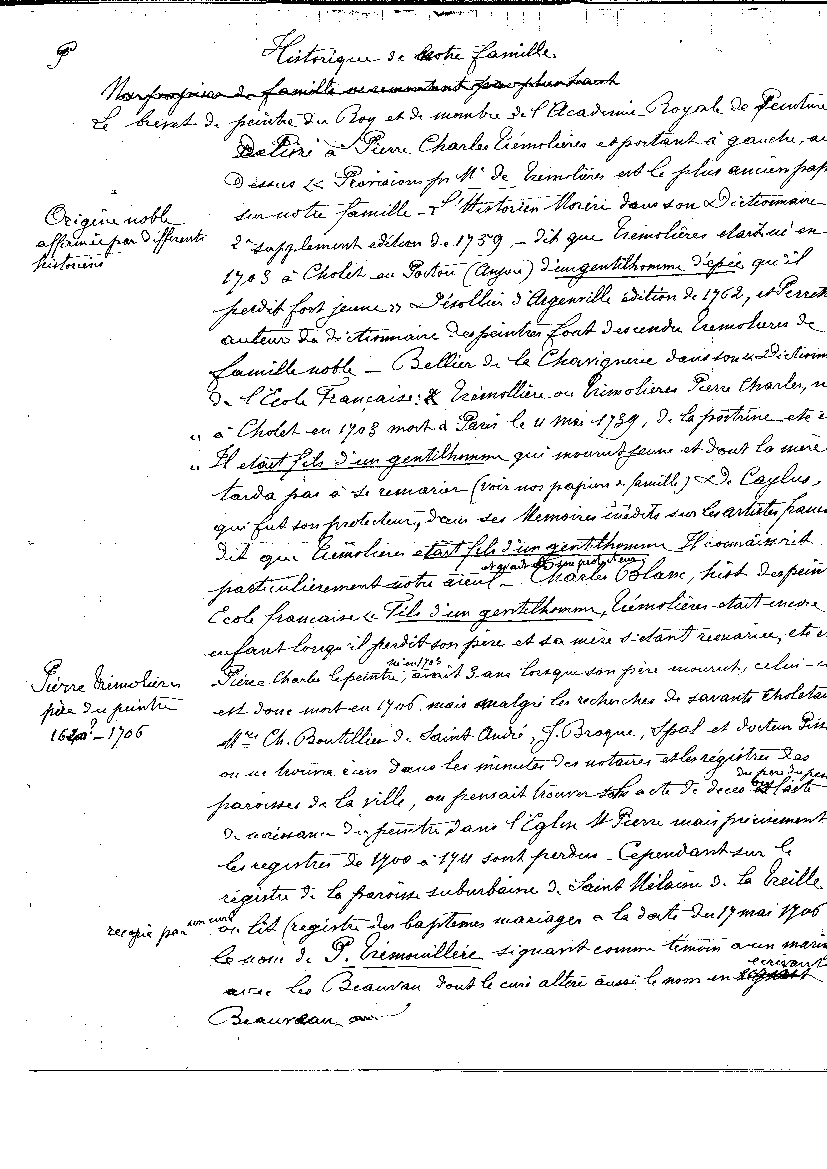 Historique de notre famille
Le brevet de peintre du Roy et de membre de l'Academie Royale de Peinture
à Pierre Charles Trémolières et portant à gauche, au
dessus « Provisions pr Mr de Trémolières est le plus ancien pap
sur notre famille - L'Historien Moréri dans son Dictionnaire
Origine noble
affirmée par différents
historiens
2e supplement edition de 1759 - dit que Trémolières etait né en
1703 à Cholet en Poitou (Anjou) d'un gentilhomme d'épée qu'il
perdit fort jeune » Désallier d'Argenville édition de 1762, et Perrett
auteur du dictionnaire des peintres font descendre Trémolières de
famille noble - Bellier de la Chavignerie dans son « Diction
de l'Ecole Française: Trémollière ou Trémolières Pierre Charles, n
" à Cholet en 1703 mort à Paris le 11 mai 1739, de la poitrine etc
" Il etait fils d'un gentilhomme qui mourut jeune et dont la mère
tarda pas à se remarier (voir nos papiers de famille) de Caylus,
qui fut son protecteur, dans ses Memoires inédits sur les artistes franc
dit que Trémolières etait fils d'un gentilhomme Il connaissait
et avait été son protecteur
particulièrement notre aïeul - Charles Blanc, hist des pein
Ecole française « Fils d'un gentilhomme, Trémolières etait encore
enfant lorsqu'il perdit son père et sa mère s'etant remariée, etc
Pierre Trémolières
père du peintre
- 1706
né en 1703
Pierre Charles le peintre, avait 3 ans lorsque son père mourut, celui-c
est donc mort en 1706 mais malgré les recherches de savants choletais
Mrs Ch. Boutillier de Saint André, J. Broque, Spal et docteur Piss
on ne trouva rien dans les minutes des notaires et les régistres des
du père du pe
paroisses de la ville, on pensait trouver acte de deces l'acte
de naissance du peintre dans l'Eglise St Pierre mais précisement
les registres de 1700 à 1711 sont perdus - Cependant sur le
régistre de la paroisse suburbaine de Saint Mélaine de la Treille
recopié par son curé on lit (registre des baptemes mariages a la date du 17 mai 1706
le nom de P. Trémouillère signant comme témoin a un maria
avec les Beauvau dont le curé altère aussi le nom en écrivant
Beauveau